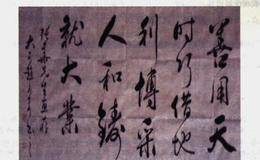 善用天
时巧借地
利博采
人和铸
就大业